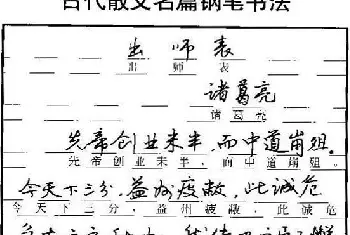 古代散文名篇钢笔书法
出师表
出师表
诸葛亮
诸葛亮
先帝创业未半,而中道崩殂。
先帝创业未半,而中道崩殂。
今天下三分,益州疲敝,此诚危
今天下三分,益州疲敝,此诚危